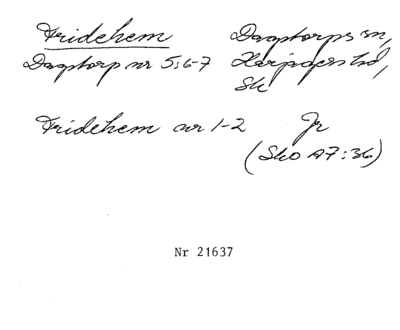 Fridehem Dagstorps sn,
Dagstorp nr 5:6-7 Harjagers hd,
Sk
Fridehem nr 1-2 Jr
(SkO A7:36)
Nr 21637